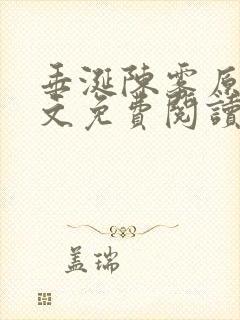 垂涎陳雾原
文免費閱讀
盖瑞